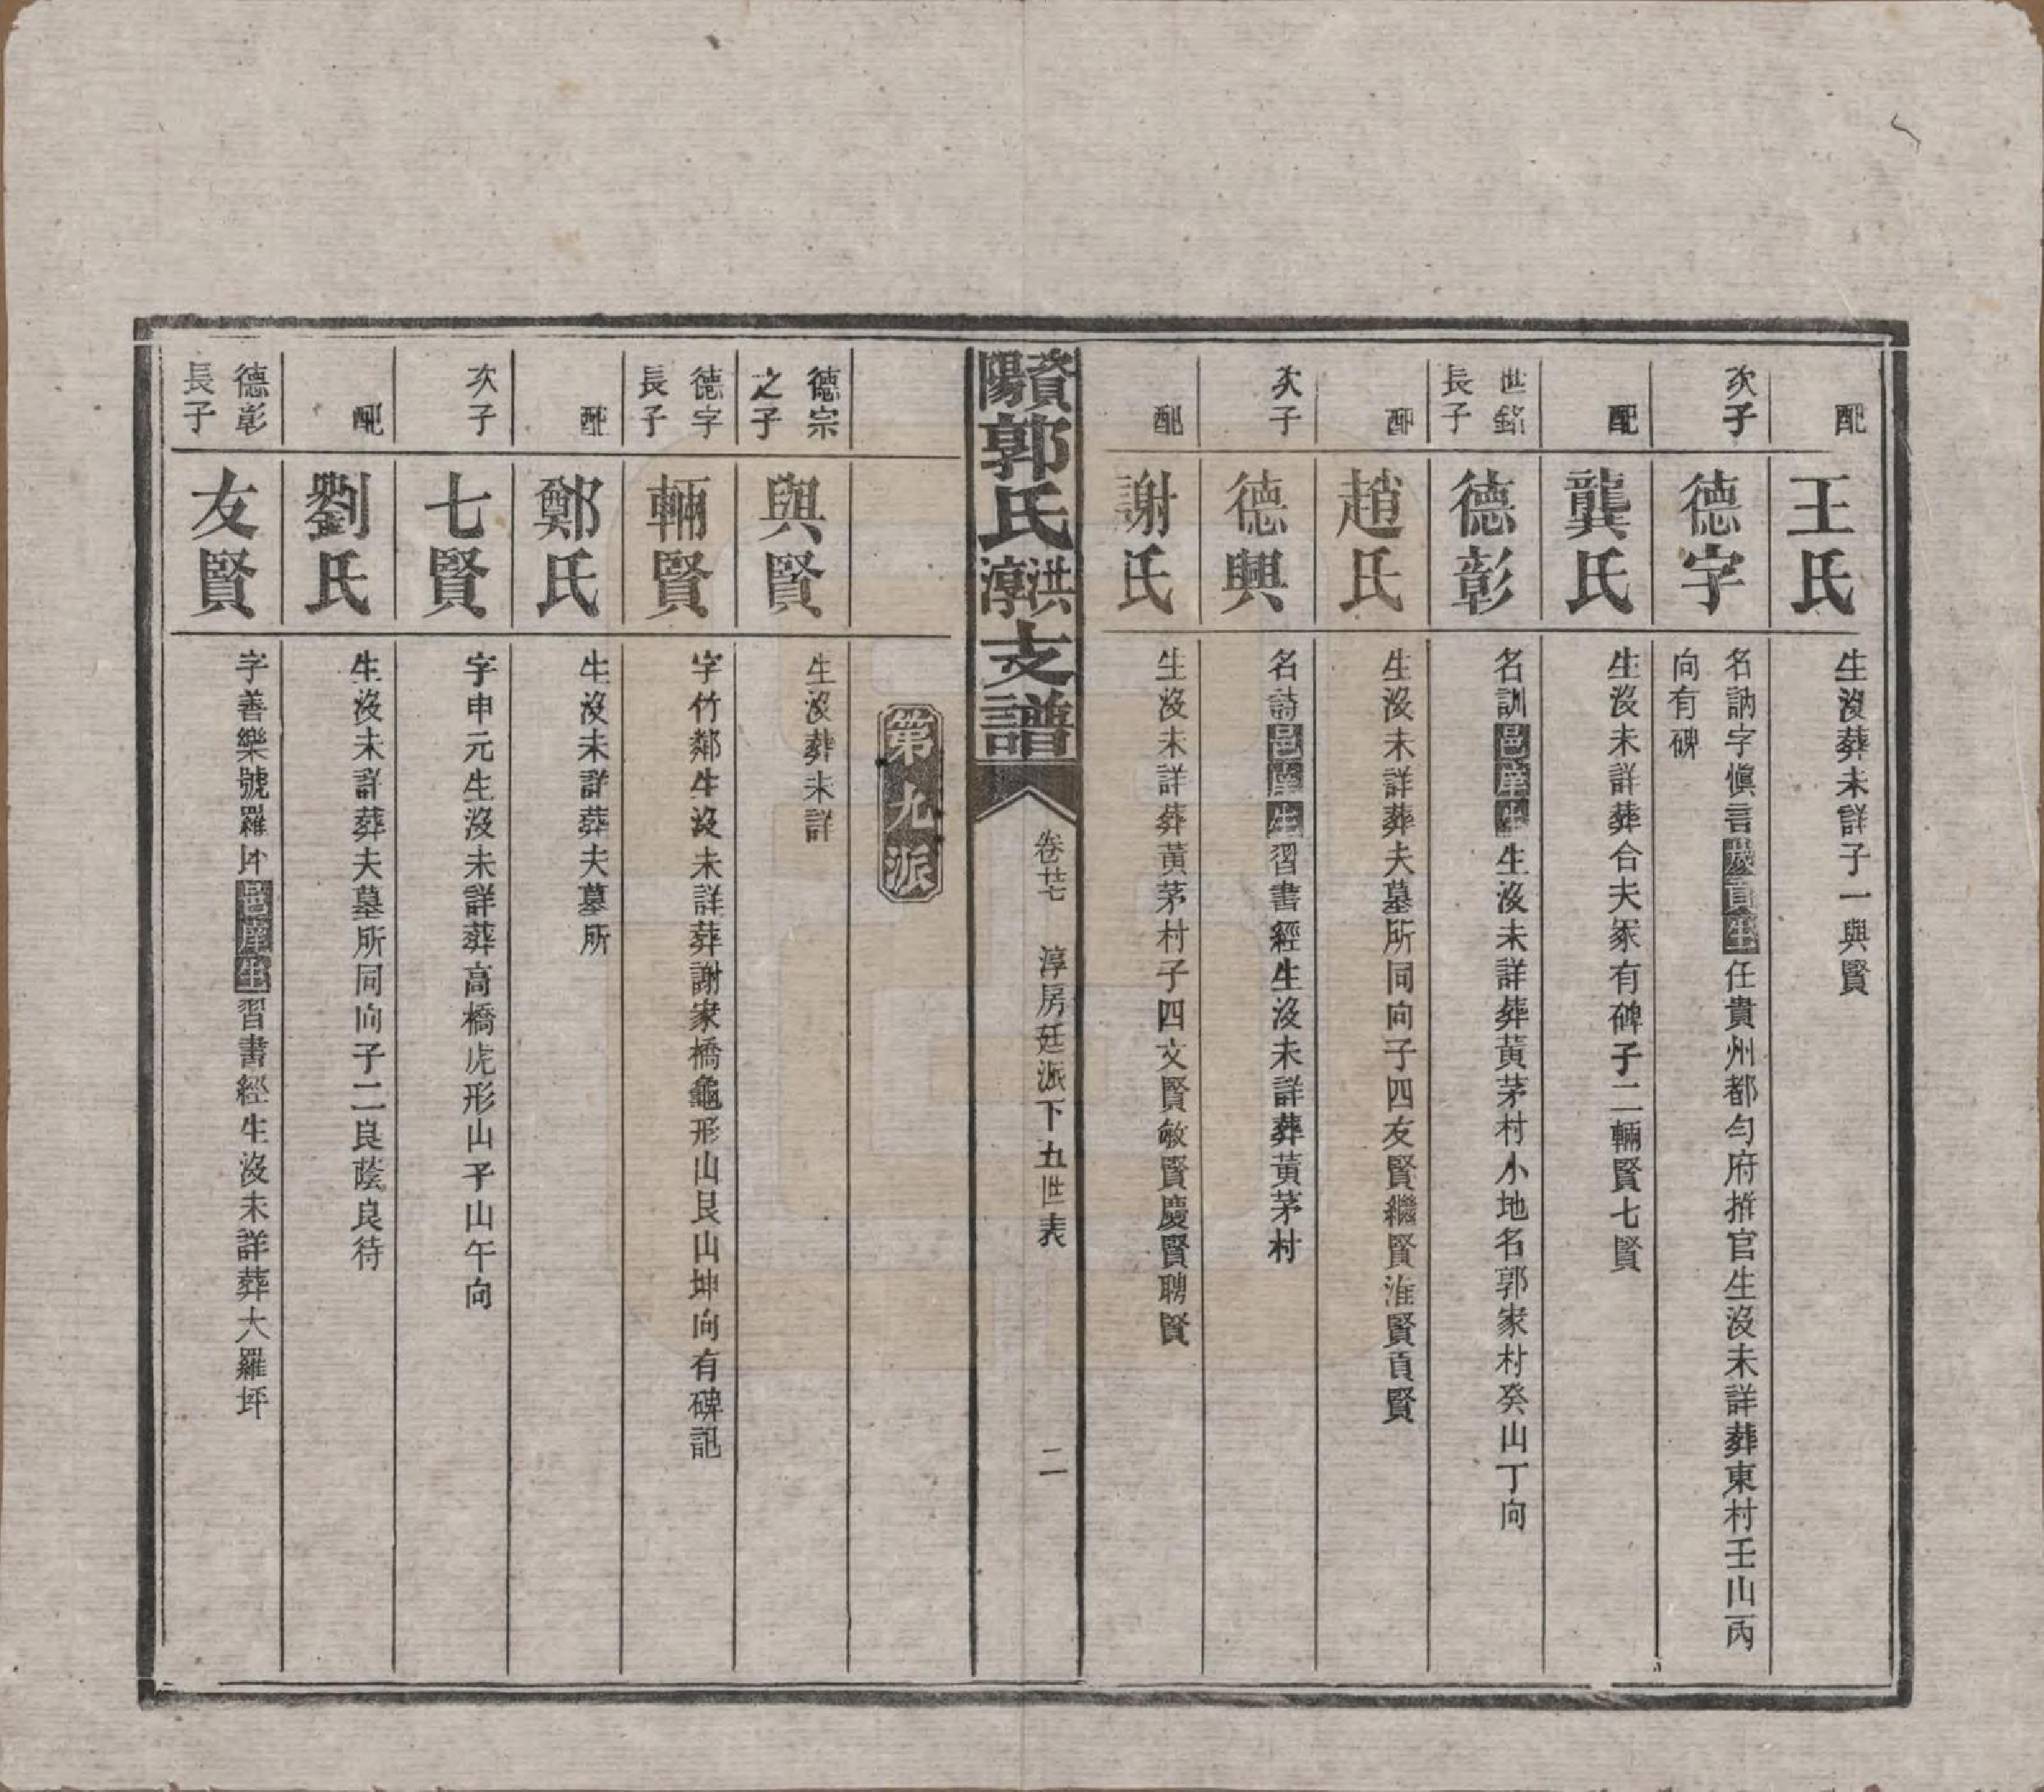 配
王氏
生沒葬未詳子一與賢
次子
德字
名訥字愼言歲貢生任貴州都勻府推官生沒未詳葬東村壬山丙
向有碑
配
龔氏
生沒未詳葬合夫冢有碑子二輛賢七賢
世銘
長子
德彰
名訓邑庠生生沒未詳葬黃茅村小地名郭家村癸山丁向
配
趙氏
生沒未詳葬夫墓所同向子四友賢繼賢淮賢貢賢
次子
德興
名詩邑庠生習書經生沒未詳葬黃茅村
配
謝氏
生沒未詳葬黃茅村子四文賢敏賢慶賢聘賢
資陽郭氏洪淳支譜
卷廿七
淳房廷派下五世表
二
第九派
德宗
之子
與賢
生沒葬未詳
德字
長子
輛賢
字竹鄰生沒未詳葬謝家橋龜形山艮山坤向有碑記
配
鄭氏
生沒未詳葬夫墓所
次子
七賢
字申元生沒未詳葬高橋虎形山子山午向
配
劉氏
生沒未詳葬夫墓所同向子二良蔭良待
德彰
長子
友賢
字善樂號羅邑庠生習書經生沒未詳葬大羅坪